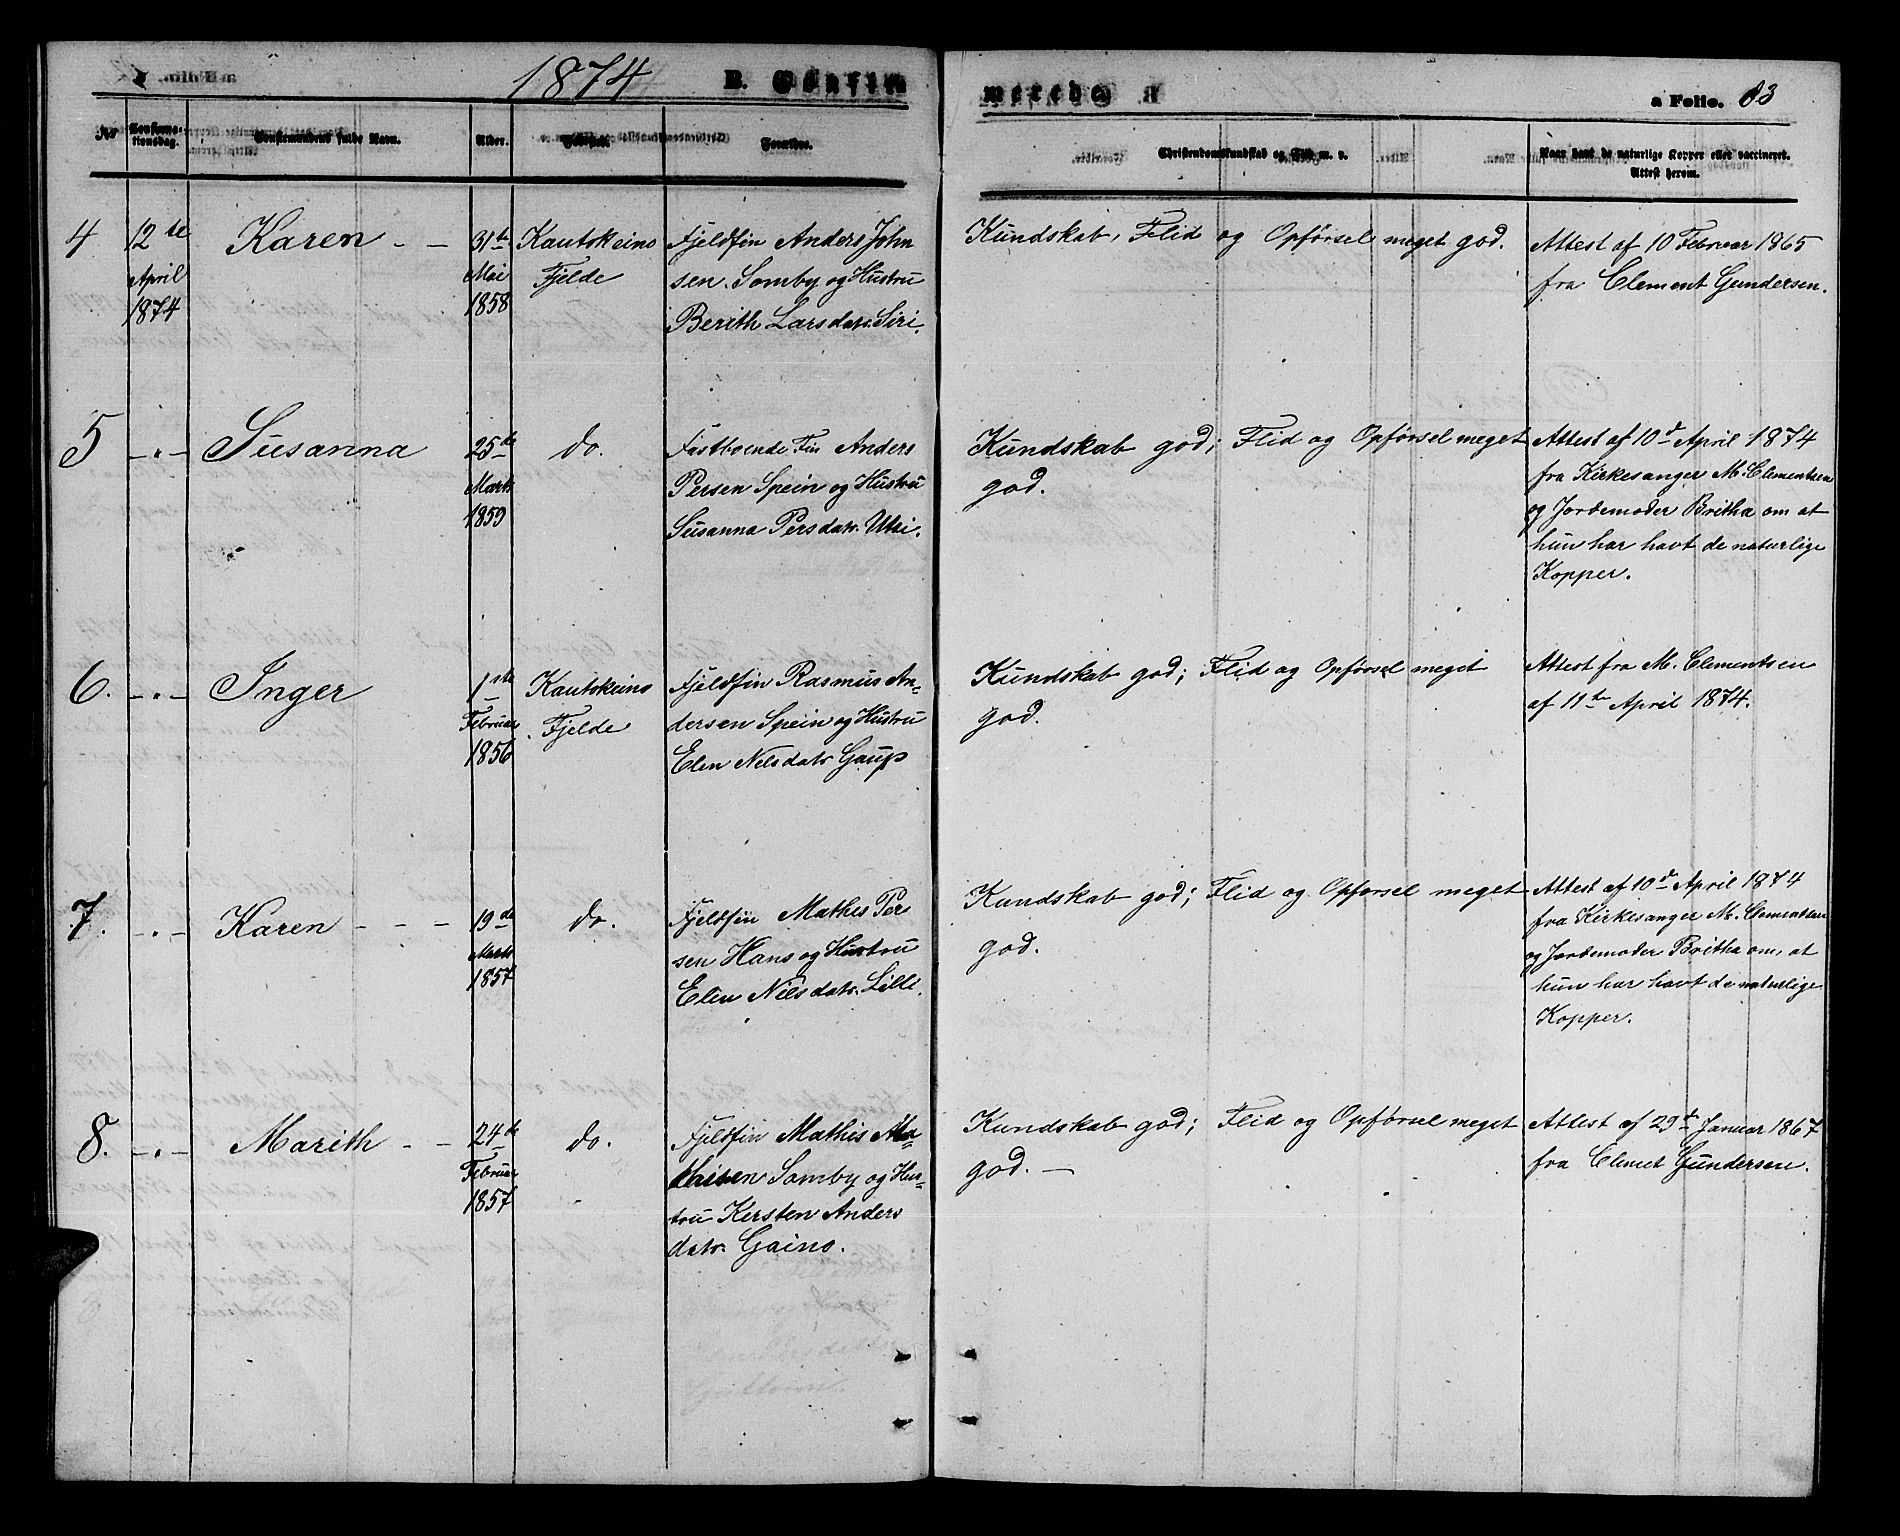 1874 B. Confir merede a Folio. 83
Nr Confirmationsdag. Confirmandens fulde Navn. Alder. Fødested. Forældre. Christendomskundskab og Flid m. v. Naar havt de naturlige Kopper eller vaccineret. Attest herom.
4 12te April 1874 Karen — — 31te Mai 1858 Kautokeino Fjelde
Fjeldfin Anders John
sen Somby og Hustru
Berith Larsdatr. Siri.
Kundskab, Flid og Opførsel meget god.
Attest af 10 Februar 1865
fra Clement Gundersen.
5 — " — Susanna 25de Marts 1859 do.
Fastboende Fin Anders
Persen Spein og Hustru
Susanna Persdatr. Utsi.
Kundskab god; Flid og Opførsel meget
god.
Attest af 10d April 1874
fra Kirkesanger M. Clementsen
og Jordemoder Britha om at
hun har havt de naturlige
Kopper.
6. — " — Inger 1ste Februar 1856 Kautokeino Fjelde
Fjeldfin Rasmus An-
dersen Spein og Hustru
Elen Nilsdatr Gaup
Kundskab god; Flid og Opførsel meget
god.
Attest fra M. Clementsen
af 11te April 1874.
7. — " — Karen — — — 19de Marts 1857 do.
Fjeldfin Mathis Per
sen Hans og Hustru
Elen Nilsdatr. Lilli.
Kundskab god; Flid og Opførsel meget
god.
Attest af 10d April 1874
fra Kirkesanger M. Clementsen
og Jordemoder Britha om, at
hun har havt de naturlige
Kopper.
8. — " — Marith — — 24de Februar 1857 do.
Fjeldfin Mathis Ma-
thisen Somby og Hus-
tru Kersten Anders
datr. Gaino.
Kundskab god; Flid og Opførsel meget
god. —
Attest af 29d Januar 1867
fra Clemet Gundersen.